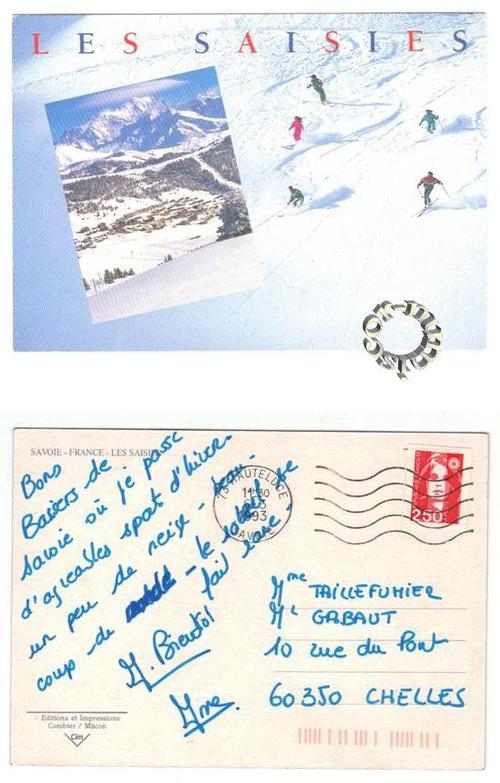 LES SAISIES
SAVOIE - FRANCE - LES SAISIES
Bons
Baisers de
Savoie où je passe
d'agréables sport d'hiver.
un peu de neige -
coup de - le soleil se
fait rare -
A bientôt
73 HAUTELUCE
11H30
1993
SAVOIE
2,50
Mme TAILLEFUMIER
Mr GABAUT
10 rue du Pont
60350 CHELLES
Editions et Impressions
Combier / Mâcon
Cim